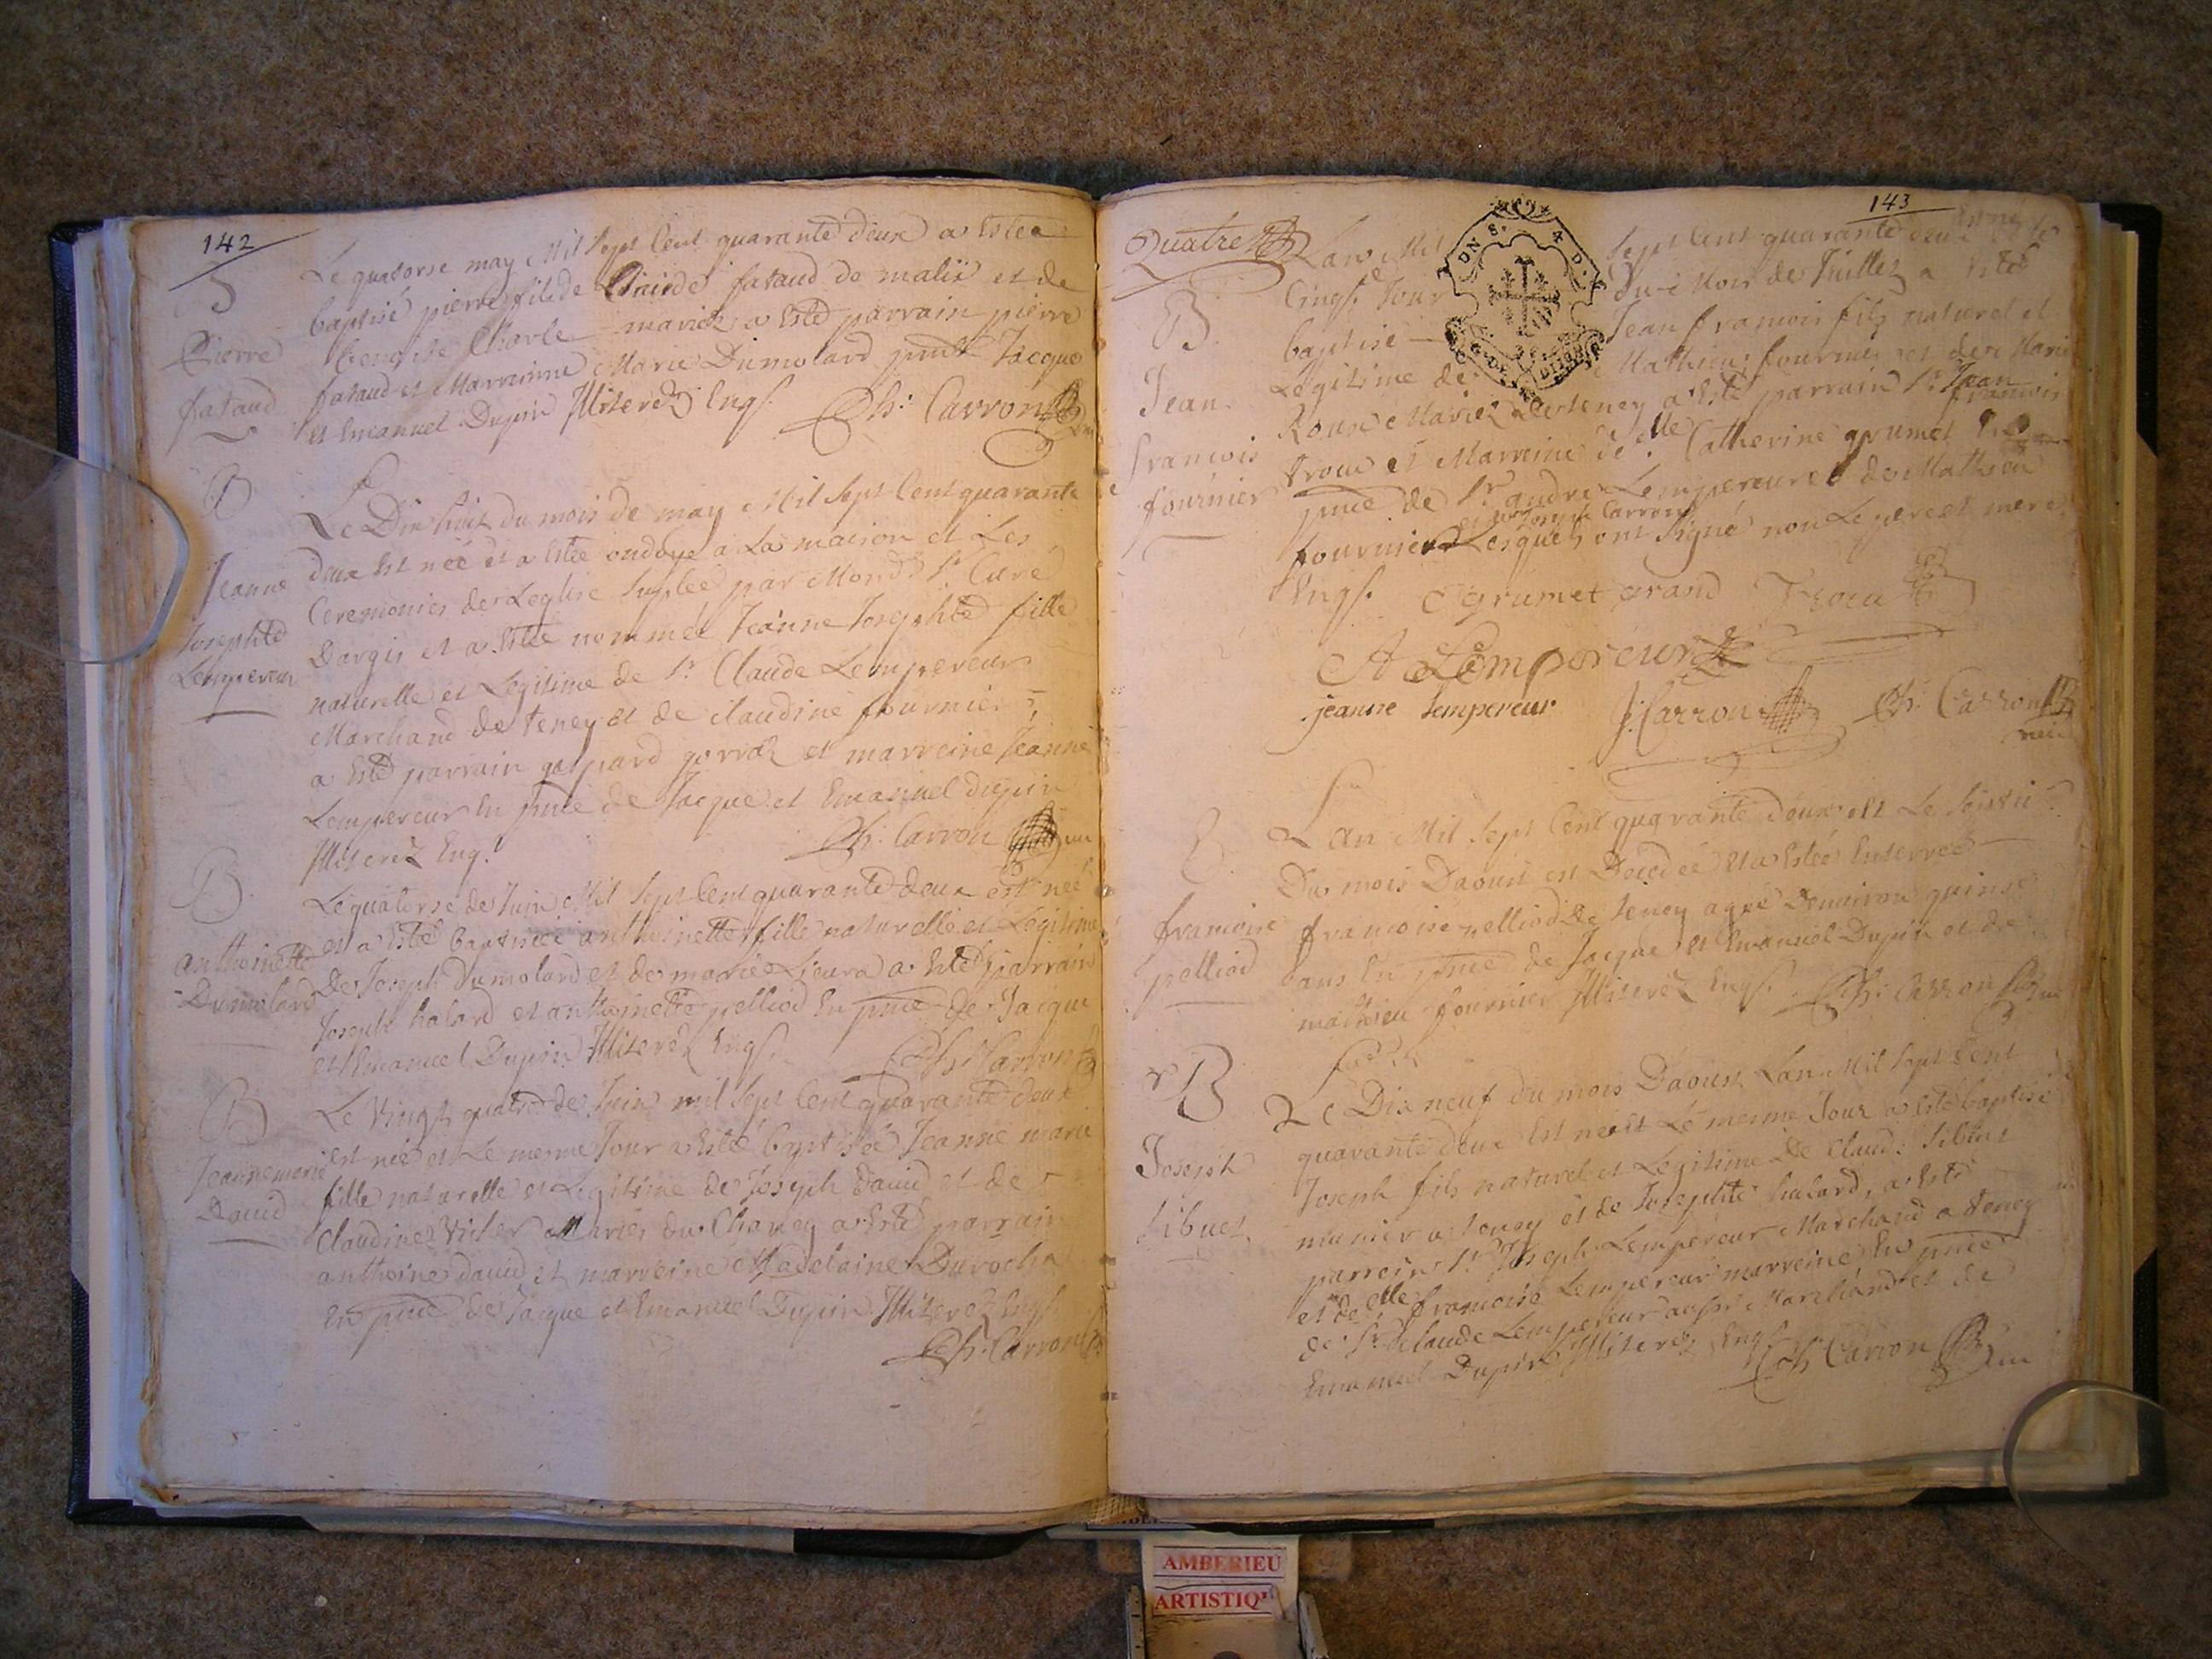 142
Le quatorse may Mil sept Cent quarante deux a Estee
baptisé pierre fils de fataud de malix et de
mariez a Esté parrain pierre
fataud et Marreinne Marie Dumolard Jacque
et Emanuel Dupin Illiterez Enqs.
Ph: Carron
Pierre
fataud
B
Le Dix huit du mois de may Mil sept Cent quarante
deux est néé et a Estée ondoyé a La maison et Les
Ceremonies de Leglise suplée par Sr. Curé
Dargis et a Estée nommée Jeanne Josephte fille
naturelle et Legitime de Sr. Claude Lempereur
Marchand de teney et de claudine fournier
a Esté parrain gaspard gorraz et marreine Jeanne
Lempereur En pnce de Jacque et Emanuel dupin
Illiterez Enq.
Ph: Carron
Jeanne
Josephte
Lempereur
B
Le quatorse de Juin Mil sept Cent quarante deux est néé
et a Esté baptisée anthoinette fille naturelle et Legitime
De Joseph Dumolard et de marie a Esté parrain
Joseph halard et anthoinette pelliod En pnce de Jacque
et Emanuel Dupin Illiterez Enqs.
Ph: Carron
anthoinette
Dumolard
B
Le Vingt quatre de Juin mil sept Cent quarante deux
est néé et Le meme Jour a Estée baptisée Jeanne marie
fille naturelle et Legitime de Joseph Dauid et de
Claudine Mariés du Charvey a Esté parrain
anthoine dauid et marreine Madelaine Durochat
En pnce de Jacque et Emanuel Dupin Illiterez Enqs
Ph: Carron
Jeanne merie
Dauid
143
Quatre
Lan Mil sept Cent quarante deux
Cinqs. Jour du Mois de Juillez a Esté
baptisé Jean francois fils naturel et
Legitime de Mathieu fournier et de Marie
Roux Mariez de teney a Esté parrain Sr. Jean francois
trocu et Marreine delle. Catherine grumet
pnce de Sr. andre Lempereur et de Mathieu
et de Joseph Carron
fournier Lesquels ont signé non Le pere et mere
Enqs. C grumet grand Trocu
A Lempereur
jeanne lempereur J: Carron Ph: Carron
B
Jean
francois
fournier
Lan Mil sept Cent quarante deux et Le
Du mois Daoust est Decedée et a Estée Enterrée
francoise pelliod de teney agée Denuiron quinse
ans En pnce de Jacque et Emanuel Dupin et de
mathieu fournier Illiterez Enqs. Ph: Carron
francoise
pelliod
B
Le Dix neuf du mois Daoust Lan Mil sept Cent
quarante deux Est né et Le meme Jour a Esté baptisé
Joseph fils naturel et Legitime De Claud: Sibuet
munier a teney et de Josephte halard, a Esté
parrein Sr. Joseph Lempereur Marchand a teney
et delle francoise Lempereur marreine En pnce
de Sr. Claude Lempereur aussi Marchand et de
Emanuel Dupin Illiterez Enqs
Ph: Carron
Joseph
Sibuet
AMBERIEU
ARTISTIQ